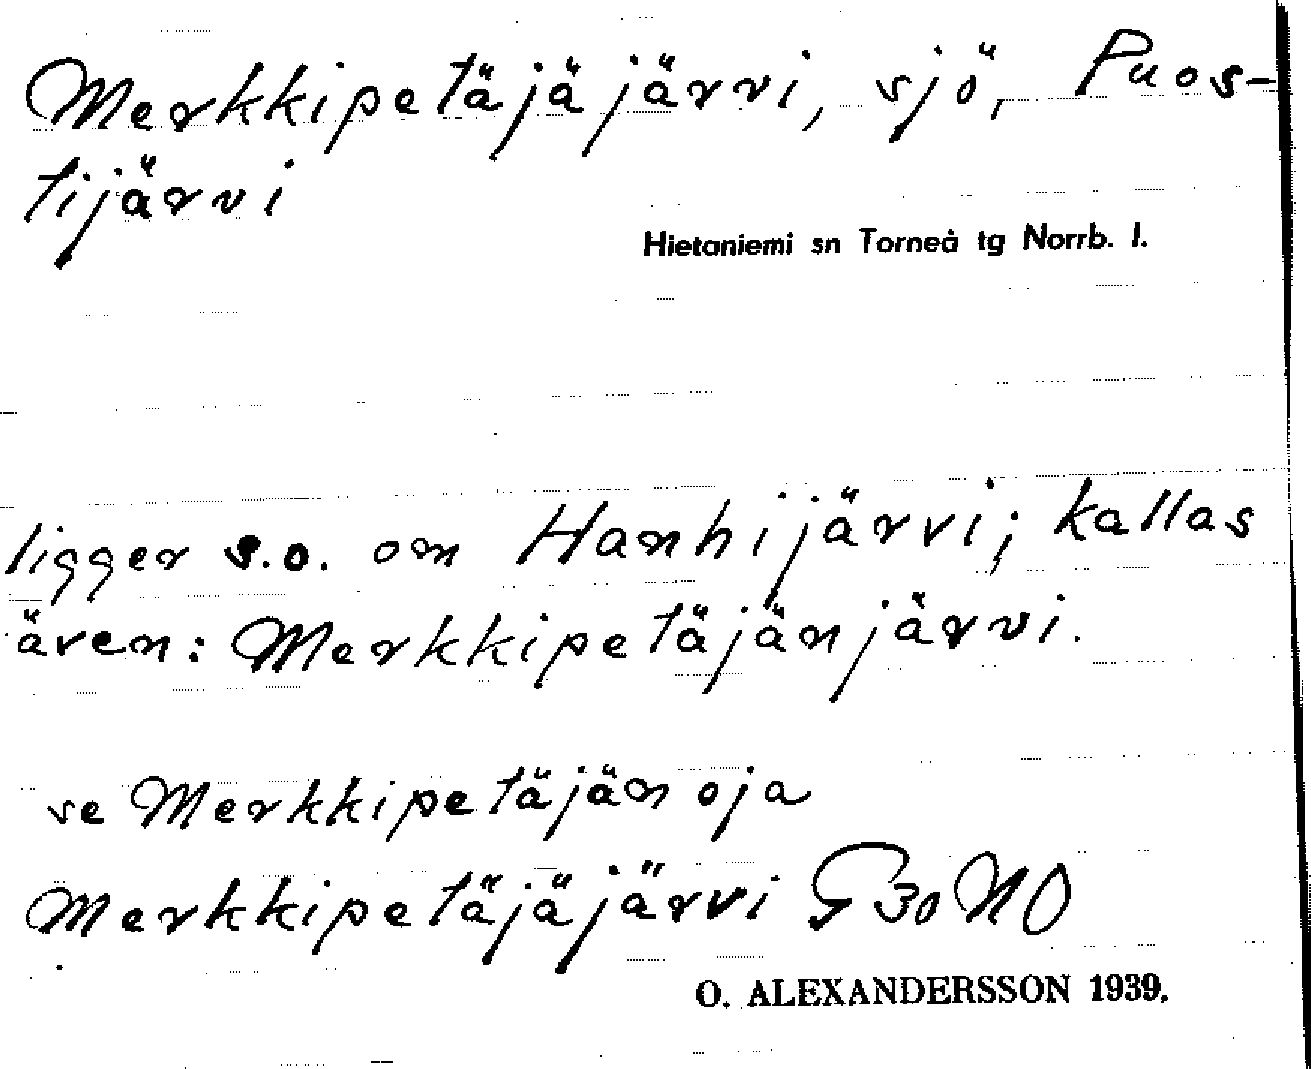 Merkkipetäjäjärvi, sjö, Puos-
tijärvi
Hietaniemi sn Torneå tg Norrb. l.
ligger s.o. om Hanhijärvi; kallas
även: Merkkipetäjänjärvi.
se Merkkipetäjänoja
Merkkipetäjäjärvi G 30 NO
O. ALEXANDERSSON 1939.